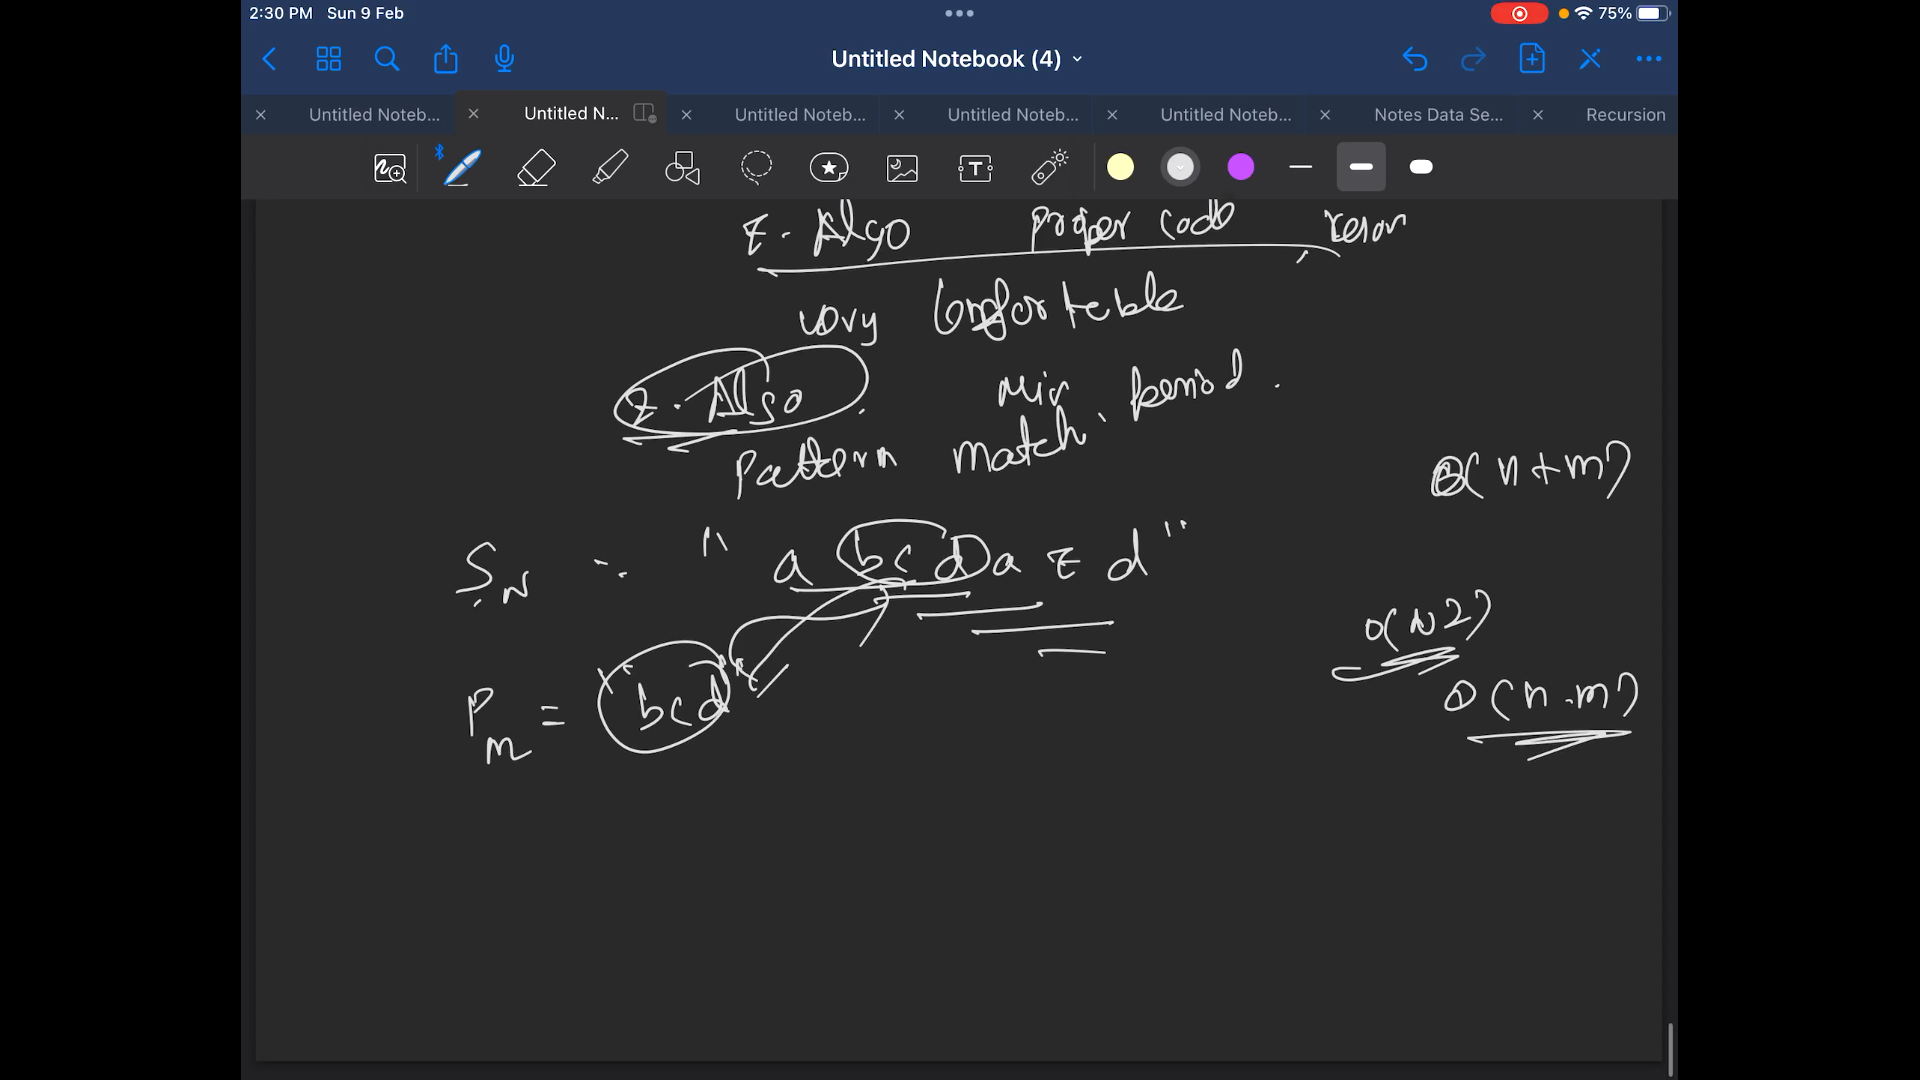 2:30 PM Sun 9 Feb
75%
Untitled Notebook (4)
Untitled Noteb...
Untitled N...
Untitled Noteb...
Untitled Noteb...
Untitled Noteb...
Notes Data Se...
Recursion
Z. Algo proper code
very Comfortable
Z. Algo
Min period.
pattern match.
O(n+m)
S N = " a bcd a z d "
O(N2)
P m = "bcd"
O(n.m)